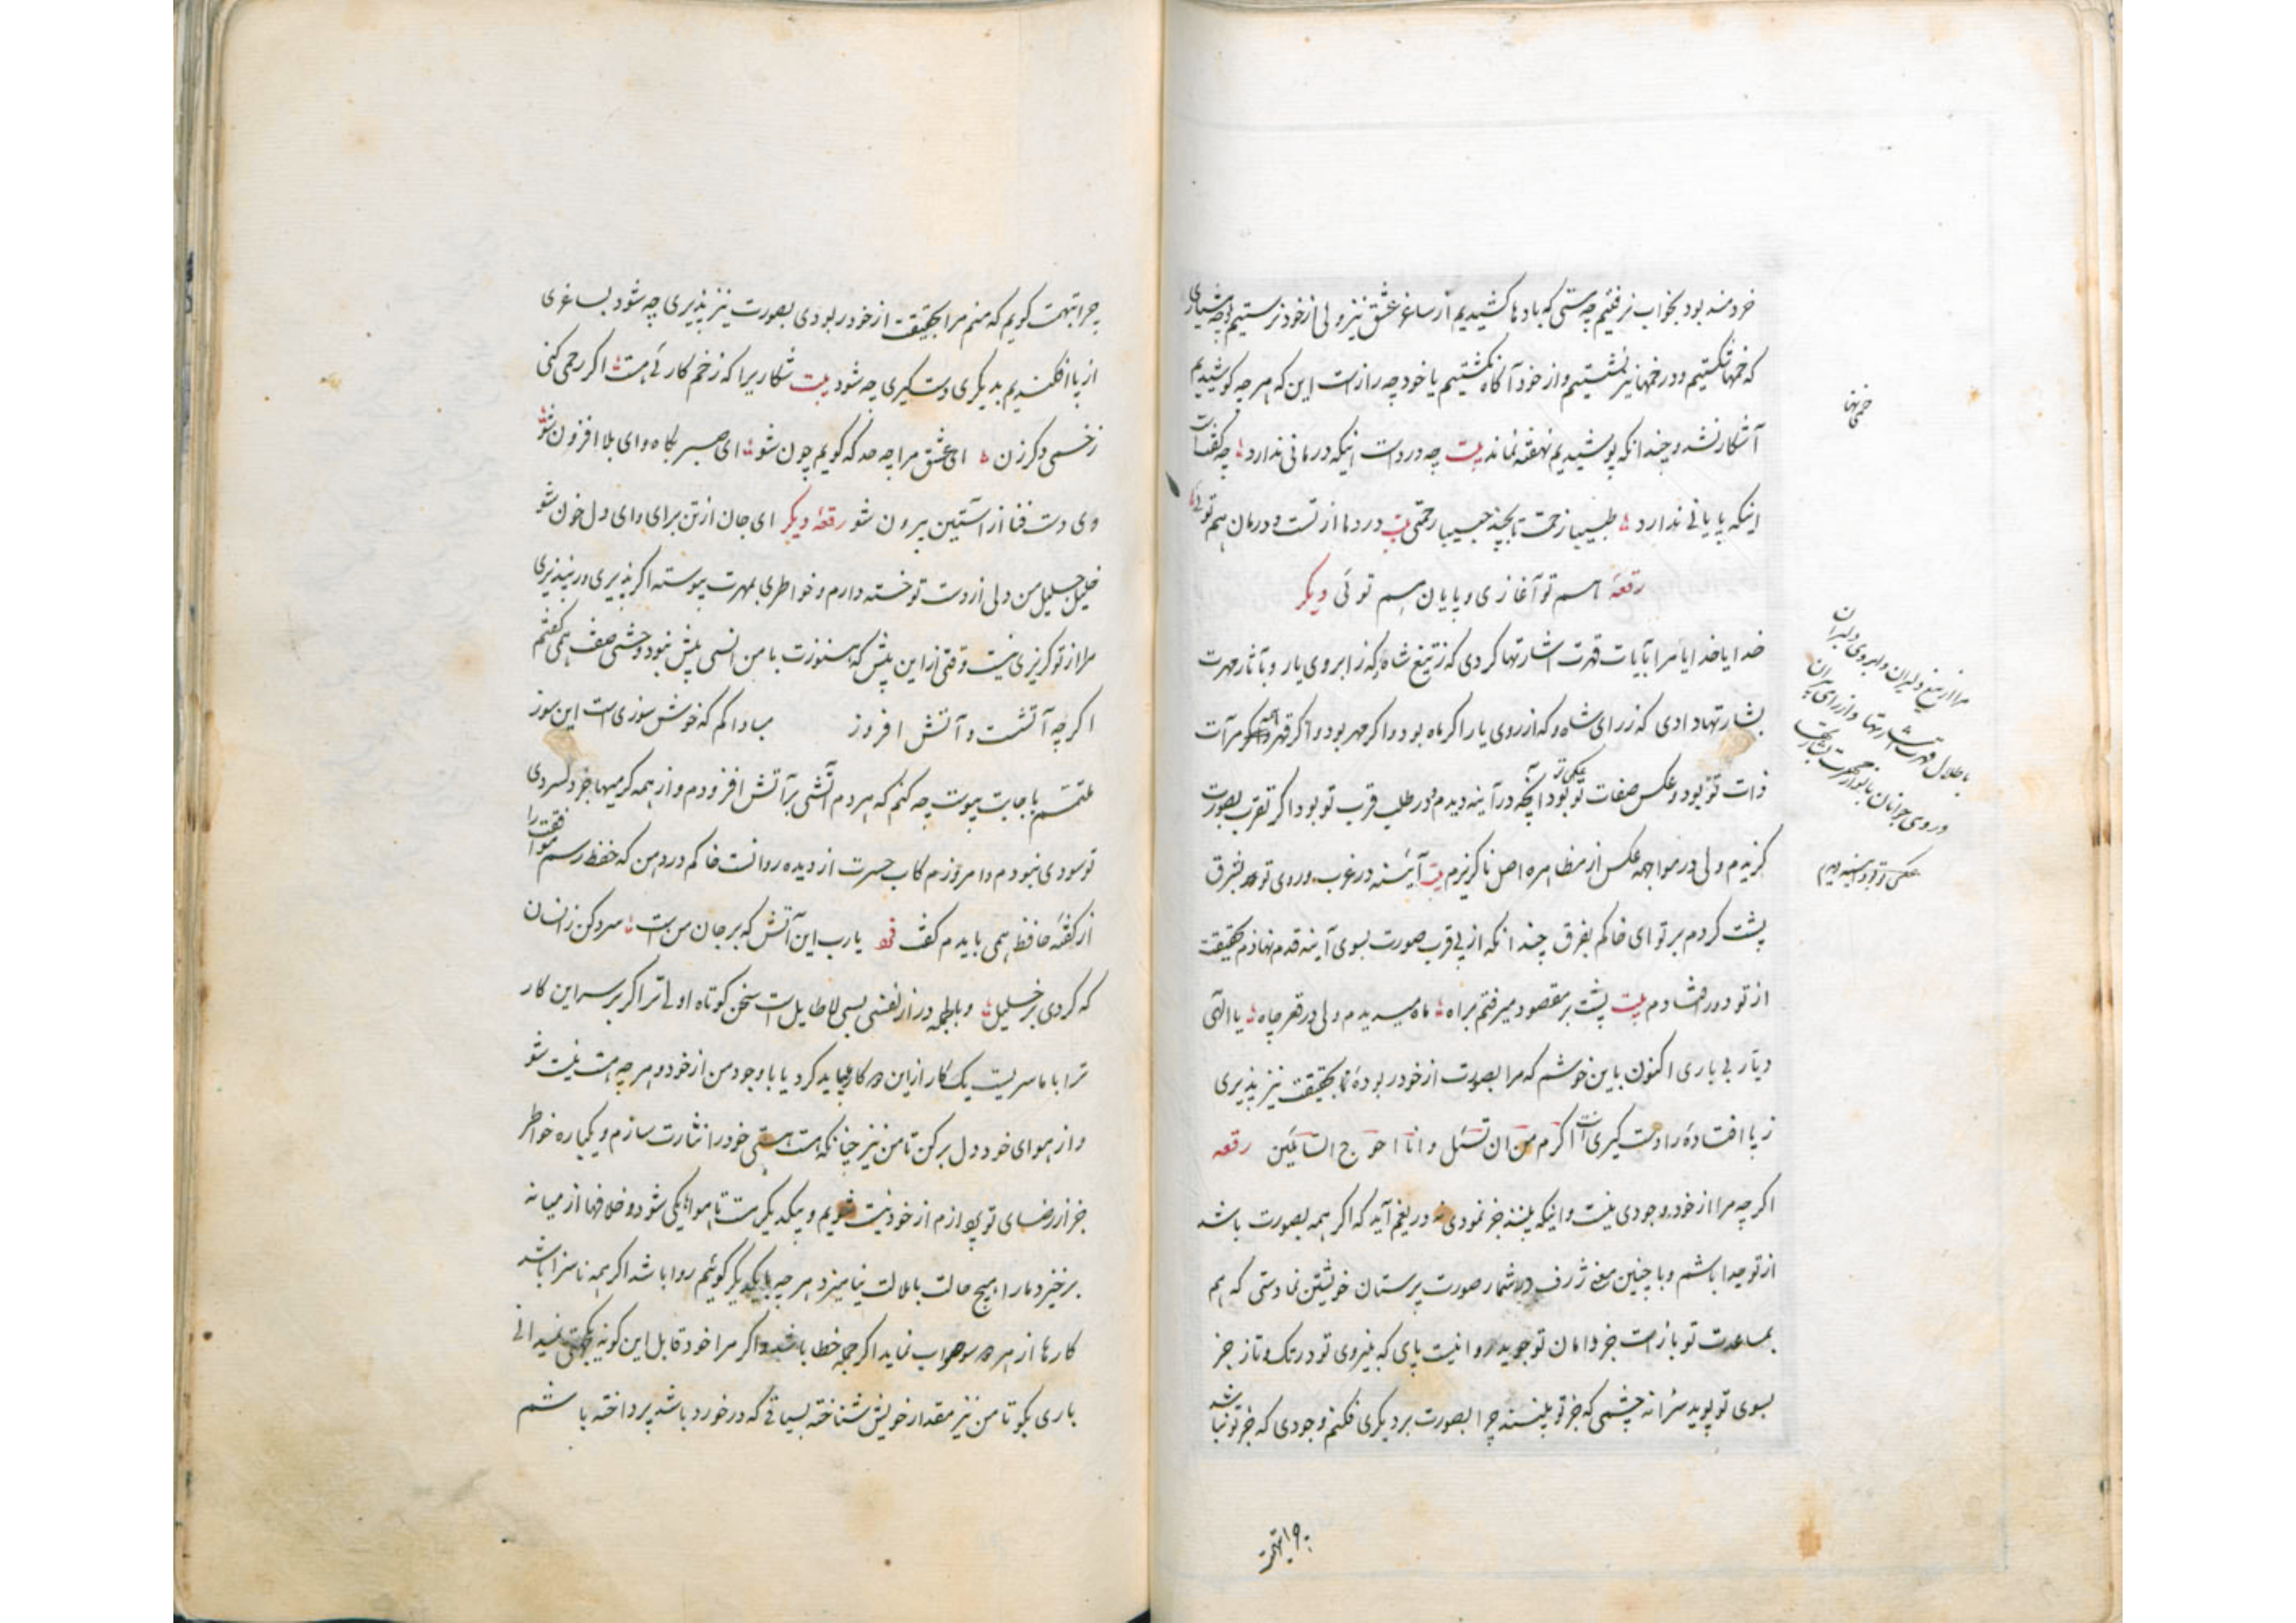 خردمند بود بخواب نرفتیم چه مستی که بادها کشیدیم از ساغر عشق نیز ولی از خود نرستیم و چه هشیاری
که خمها شکستیم و در خمها نیز نشستیم و از خود آگاه نگشتیم یا خود چه رازست این که هر چه کوشیدیم
آشکار نشد و چندانکه پوشیدیم نهفته نماند بیت چه دردست اینکه درمانی ندارد چه گفتست
اینکه پایانی ندارد طبیبا زحمت تا بچند حبیبا رحمتی بیت درد ما از تست و درمان هم توئی
رقعه هم تو آغازی و پایان هم توئی دیگر
خدایا خدایا مرا بآیات قهرت اشارتها کردی که ز تیغ شاه و که ز ابروی یار و بآثار مهرت
بشارتها دادی که ز رای شاه و که از روی یار اگر ماه بود و اگر مهر بود و اگر قهر مرآت
ذات تو بود و عکس صفات تو بود آنچه در آینه دیدم در طلب قرب تو بود اگر تقرب بصورت
گزیدم ولی در مواجهه عکس از مظاهره اصل ناگزیرم بیت آینه در غرب و روی تو بشرق
پشت کردم بر تو ای خاکم بفرق چندانکه از پی قرب صورت بسوی آینه قدم نهادم بحقیقت
از تو دور افتادم بیت پشت بر مقصود میرفتم براه ماه میدیدم ولی در قعر چاه یا الهی
دیار بی یاری اکنون باین خوشم که مرا بصورت از خود ربوده تا بحقیقت نیز پذیری
ز پا افتاده را دست گیری انت اکرم من ان تسئل و انا احوج السائلین رقعه
اگر چه مرا از خود وجودی نیست و اینکه بینند جز نمودی نه دریغم آید که اگر همه بصورت باشد
از تو جدا باشم و با چنین معنی ژرف در شمار صورت پرستان خویشتن نما دستی که هم
بمساعدت تو بازست جز دامان تو جوید روا نیست پای که بنیروی تو در تک و تاز جز
بسوی تو پوید سزا نه چشمی که جز تو بیند چرا بصورت بر دیگری فکنم وجودی که جز تو نباشد
خمی نها
مرا از تیغ دلیران و ابروی دلبران
باطلال قهرت اشارتها و از رای پیران
و روی جوانان بانوار مهرت بشارت
عکس تو بود در آینه دیدم
چرا تهمت
چرا تهمت گویم که منم مرا بحقیقت از خود ربودی بصورت نیز پذیری چه شود بساغری
از پا افکندیم بدیگری دست گیری چه شود بیت شکاریرا که زخم کاری هست اگر رحمی کنی
زخمی دگر زن ای عشق مرا چه حد که گویم چون شو ای صبر بکاه و ای بلا افزون شو
وی دست فنا ز آستین بیرون شو رقعه دیگر ای جان از تن برای وای دل خون شو
خلیل جلیل من دلی از دست تو خسته دارم و خواطری بمهرت پیوسته اگر پذیری ور نپذیری
مرا از تو گریزی نیست وقتی از این پیش که هنوزت با من انسی بیش نبود وحشی صفت همی گفتم
اگر چه آتشست و آتش افروز مبادا کم که خوش سوزی است این سوز
ملتمسم باجابت پیوست چه کنم که هر دم آتشی بر آتش افزودم و از همه گرمیها جز دلسردی
تو سودی نبودم و امروزم کاب حسرت از دیده روانست خاکم در دهن که حفظ رسم موافقت را
از گفته حافظ همی بایدم گفت یا رب این آتش که بر جان من است سرد کن زانسان
که کردی بر خلیل و بالجمله دراز نفسی بسی لاطایل است سخن کوتاه اولی ترا اگر بر سر این کار
ترا با ما سریست یک کار از این دو کار بباید کرد یا با وجود من از خود و هر چه هست نیست شو
و از هوای خود دل برکن تا من نیز چنانکه هست هستی خود را نثارت سازم و یکباره خواطر
جز از رضای تو پردازم از خود نیست شویم و بیکدیگر هست تا هواها یکی شود و خلافها از میانه
برخیزد و ما را هیچ حالت با ملالت نیامیزد هر چه با یکدیگر گوئیم روا باشد اگر همه ناسزا باشد
کارها از هر دو سو صواب نماید اگر جمله خطا باشد و اگر مرا خود قابل این گونه نمیدانی
باری بگو تا من نیز مقدار خویش شناخته بسیاقی که در خورد باشد پرداخته باشم